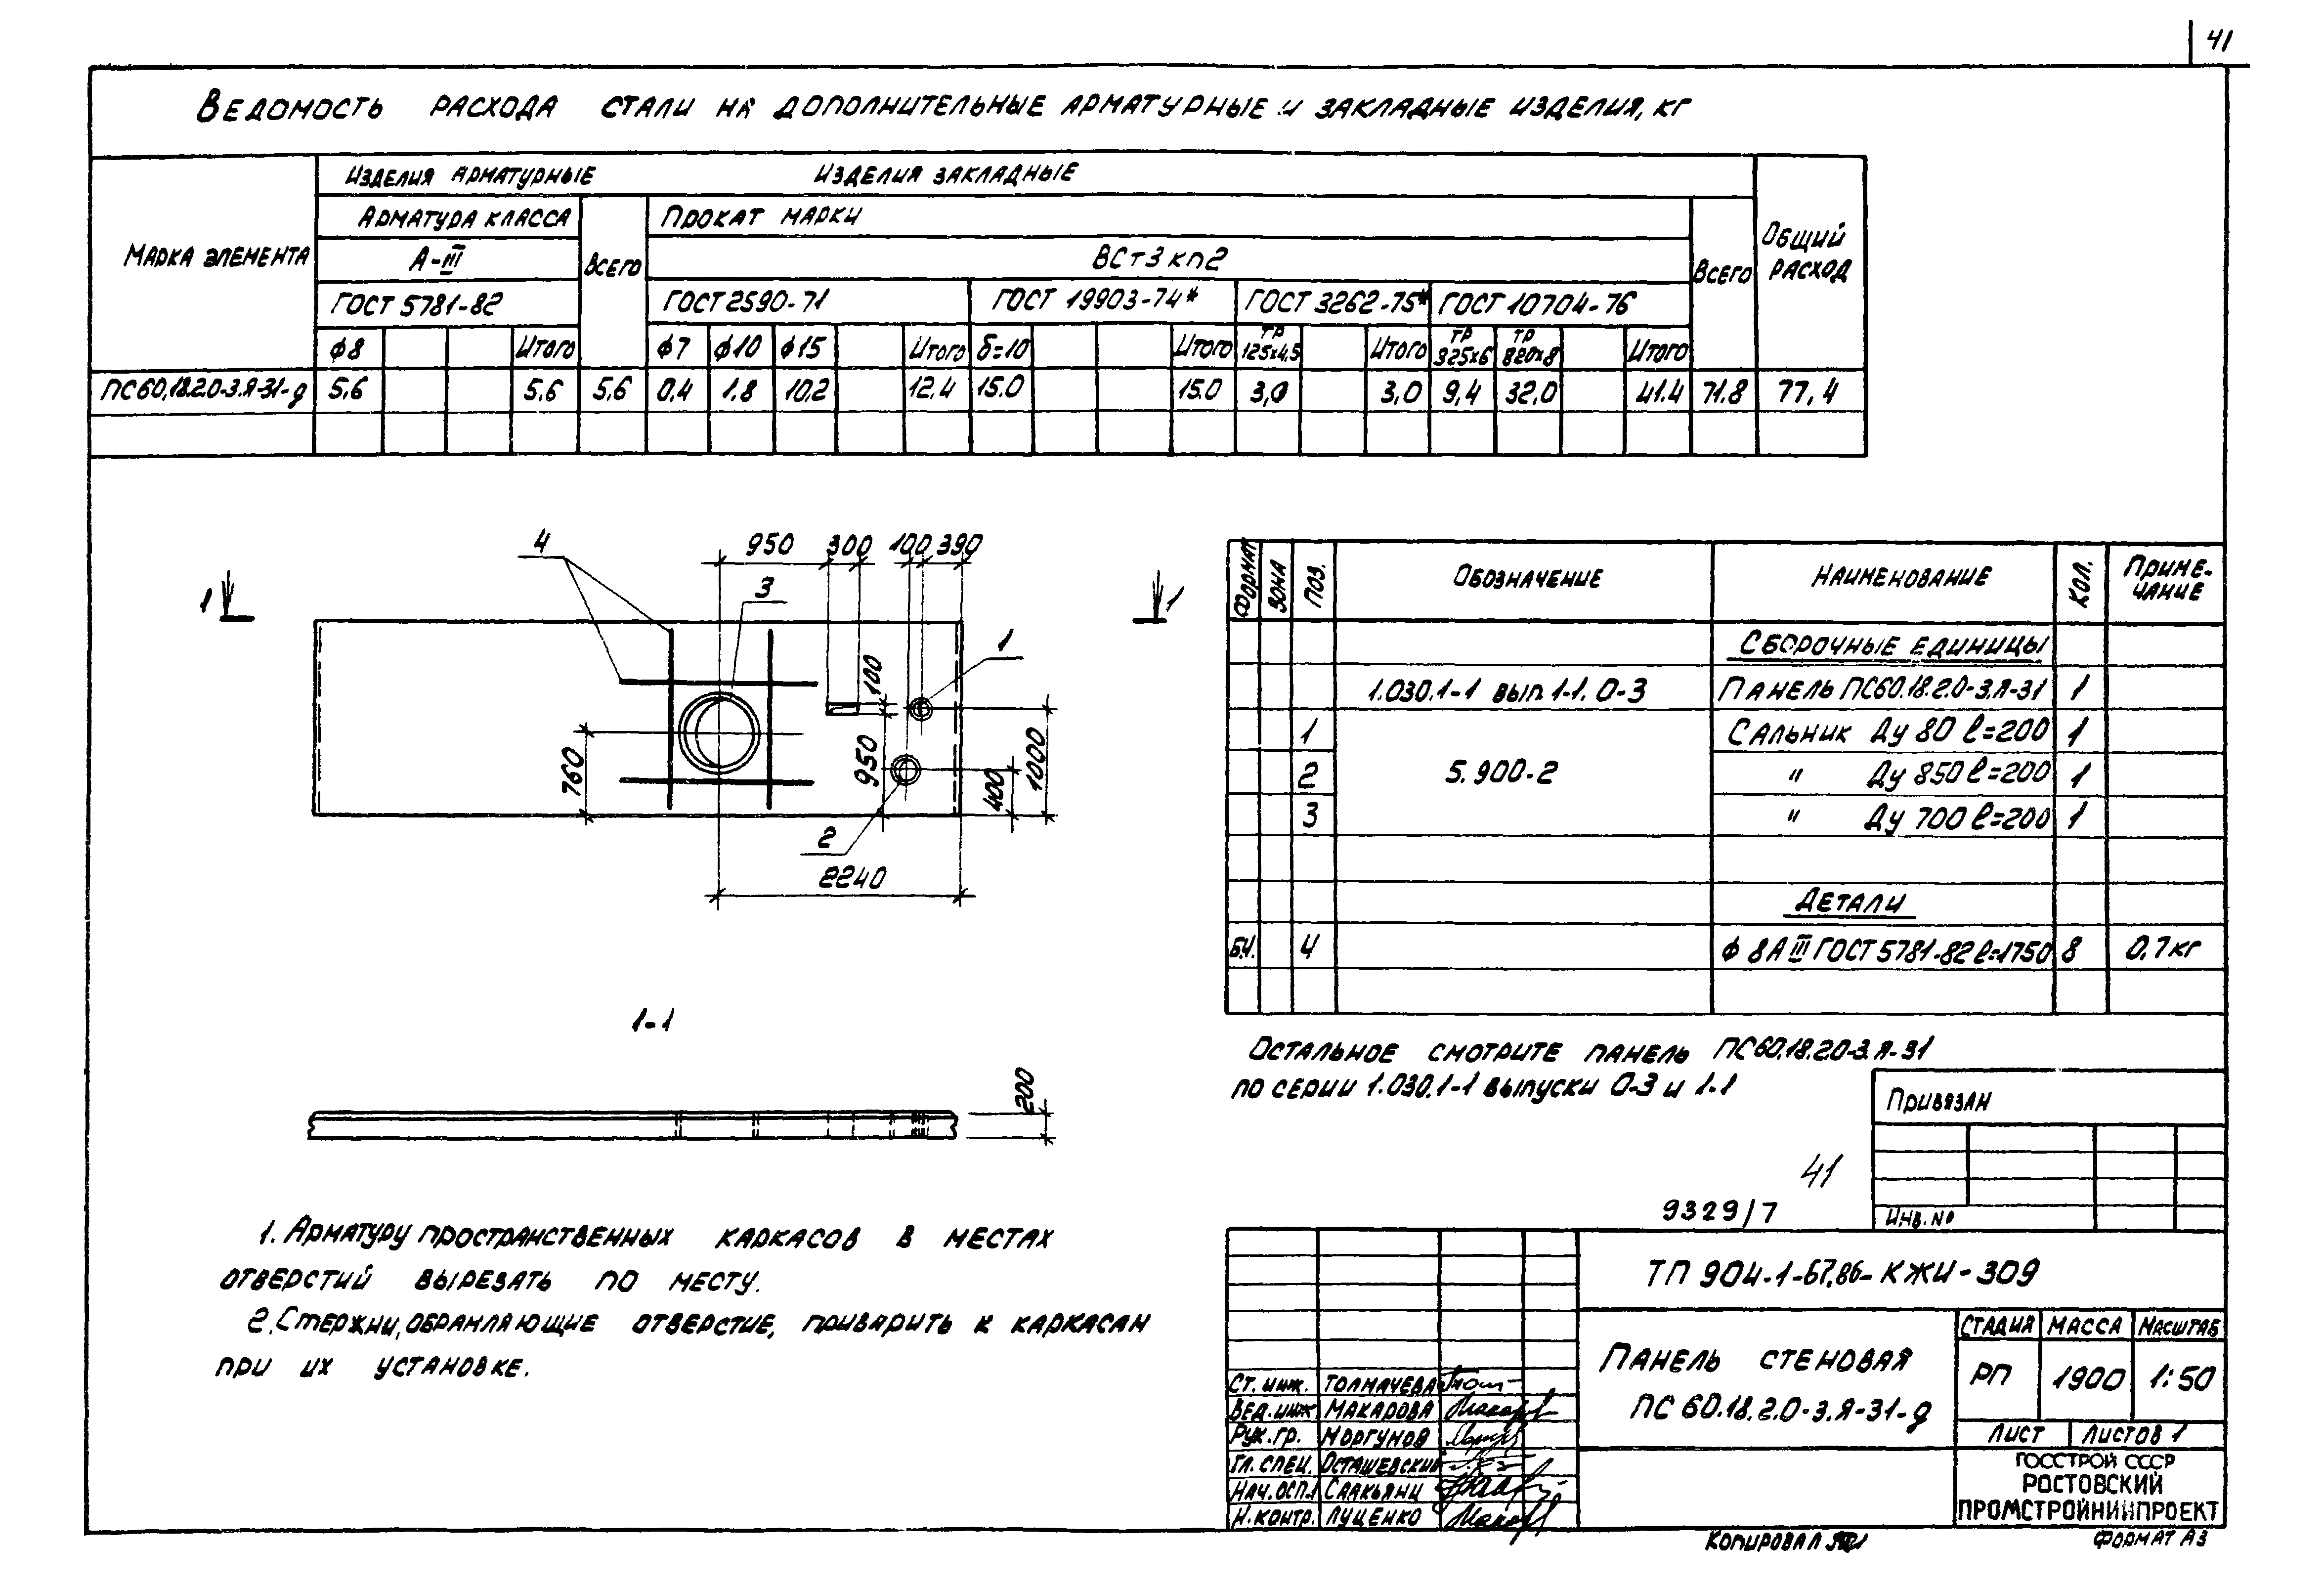 41
Ведомость расхода стали на дополнительные арматурные и закладные изделия, кг
Марка элемента
Изделия арматурные
Изделия закладные
Общий расход
Арматура класса
Всего
Прокат марки
Всего
А-III
ВСт3кп2
ГОСТ 5781-82
ГОСТ 2590-71
ГОСТ 19903-74*
ГОСТ 3262-75*
ГОСТ 10704-76
ϕ8 Итого ϕ7 ϕ10 ϕ15 Итого δ=10 Итого ТР 125х4,5 Итого ТР 325х6 ТР 820х8 Итого
ПС60.18.2.0-3.Я-31-д 5,6 5,6 5,6 0,4 1,8 10,2 12,4 15.0 15.0 3,0 3,0 9,4 32,0 41.4 71.8 77,4
4
950 300 100 390
1
1
3
1
100
760
950
400
1000
2
2240
1-1
200
1. Арматуру пространственных каркасов в местах
отверстий вырезать по месту.
2. Стержни, обрамляющие отверстие, приварить к каркасам
при их установке.
Формат Зона Поз. Обозначение Наименование Кол. Приме-
чание
Сборочные единицы
1.030.1-1 вып 1-1. 0-3 Панель ПС60.18.2.0-3.Я-31 1
1 Сальник Ду 80 ℓ=200 1
2 5.900-2 " Ду 850 ℓ=200 1
3 " Ду 700 ℓ=200 1
Детали
Б.Ч. 4 ϕ 8 А III ГОСТ 5781-82 ℓ=1750 8 0,7кг
Остальное смотрите панель ПС60.18.2.0-3.Я-31
по серии 1.030.1-1 выпуски 0-3 и 1-1
Привязан
41
9329/7
Инв. №
ТП 904-1-67,86-КЖИ-309
Панель стеновая
ПС 60.18.2.0-3.Я-31-д
Стадия Масса Масштаб
РП 1900 1:50
Лист Листов 1
Ст. инж. Толмачева
Вед. инж Макарова
Рук. гр. Моргунов
Гл. спец. Осташевский
Нач. ОСП.1 Саакьянц
Н. контр. Луценко
ГОССТРОЙ СССР
РОСТОВСКИЙ
ПРОМСТРОЙНИИПРОЕКТ
Копировал
Формат А3